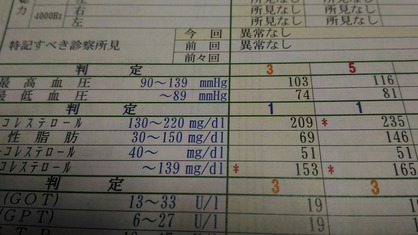 4000Hz 右 所見なし
左 所見なし 所見なし
特記すべき診察所見 今回 異常なし
前回 異常なし
前々回
判定 3 5
最高血圧 90～139 mmHg 103 116
最低血圧 ～89 mmHg 74 81
判定 1 1
コレステロール 130～220 mg/dl 209 * 235
性脂肪 30～150 mg/dl 69 146
コレステロール 40～ mg/dl 51 51
コレステロール ～139 mg/dl * 153 * 165
判定 3 3
(GOT) 13～33 U/l 19
(GPT) 6～27 U/l 19